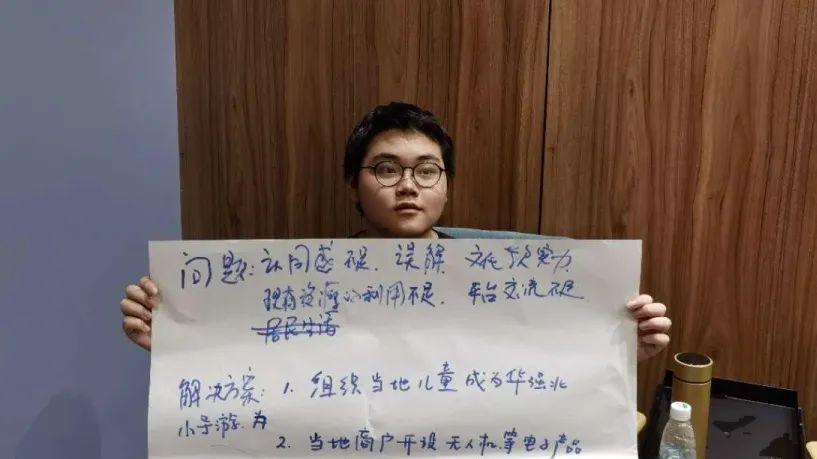 问题:认同感不足、误解、文化软实力、
现有资源的利用不足、平台交流不足
居民生活
解决方案:1. 组织当地儿童成为华强北
小导游.为
2. 当地商户开设无人机等电子产品